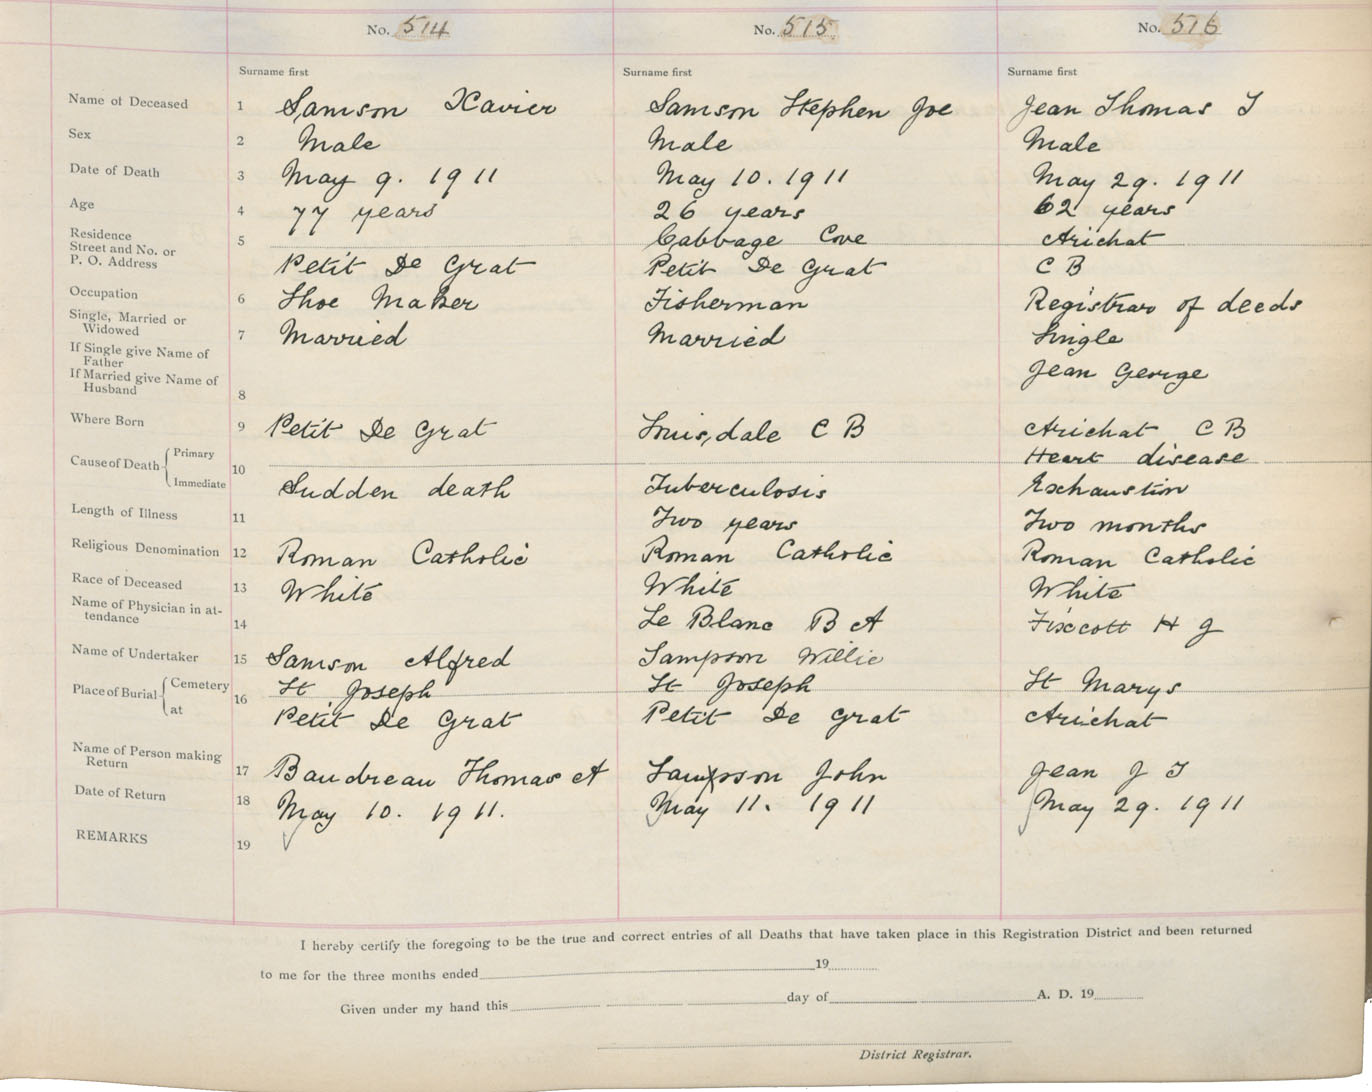 No. 514 No. 515 No. 516
Surname first Surname first Surname first
Name of Deceased 1 Samson Xavier Samson Stephen Joe Jean Thomas J
Sex 2 Male Male Male
Date of Death 3 May 9. 1911 May 10. 1911 May 29. 1911
Age 4 77 years 26 years 62 years
Residence 5 Cabbage Cove Arichat
Street and No. or
P. O. Address Petit De Grat Petit De Grat C B
Occupation 6 Shoe Maker Fisherman Registrar of deeds
Single, Married or
Widowed 7 Married Married Single
If Single give Name of
Father Jean George
If Married give Name of
Husband 8
Where Born 9 Petit De Grat Louisdale C B Arichat C B
Cause of Death Primary 10 Heart disease
Immediate Sudden death Tuberculosis Exhaustion
Length of Illness 11 Two years Two months
Religious Denomination 12 Roman Catholic Roman Catholic Roman Catholic
Race of Deceased 13 White White White
Name of Physician in at-
tendance 14 Le Blanc B A Fixcott H J
Name of Undertaker 15 Samson Alfred Sampson Willie
Place of Burial Cemetery 16 St Joseph St Joseph St Marys
at Petit De Grat Petit De Grat Arichat
Name of Person making
Return 17 Baudreau Thomas A Sampson John Jean J T
Date of Return 18 May 10. 1911. May 11. 1911 May 29. 1911
REMARKS 19
I hereby certify the foregoing to be the true and correct entries of all Deaths that have taken place in this Registration District and been returned
to me for the three months ended 19
Given under my hand this day of A. D. 19
District Registrar.